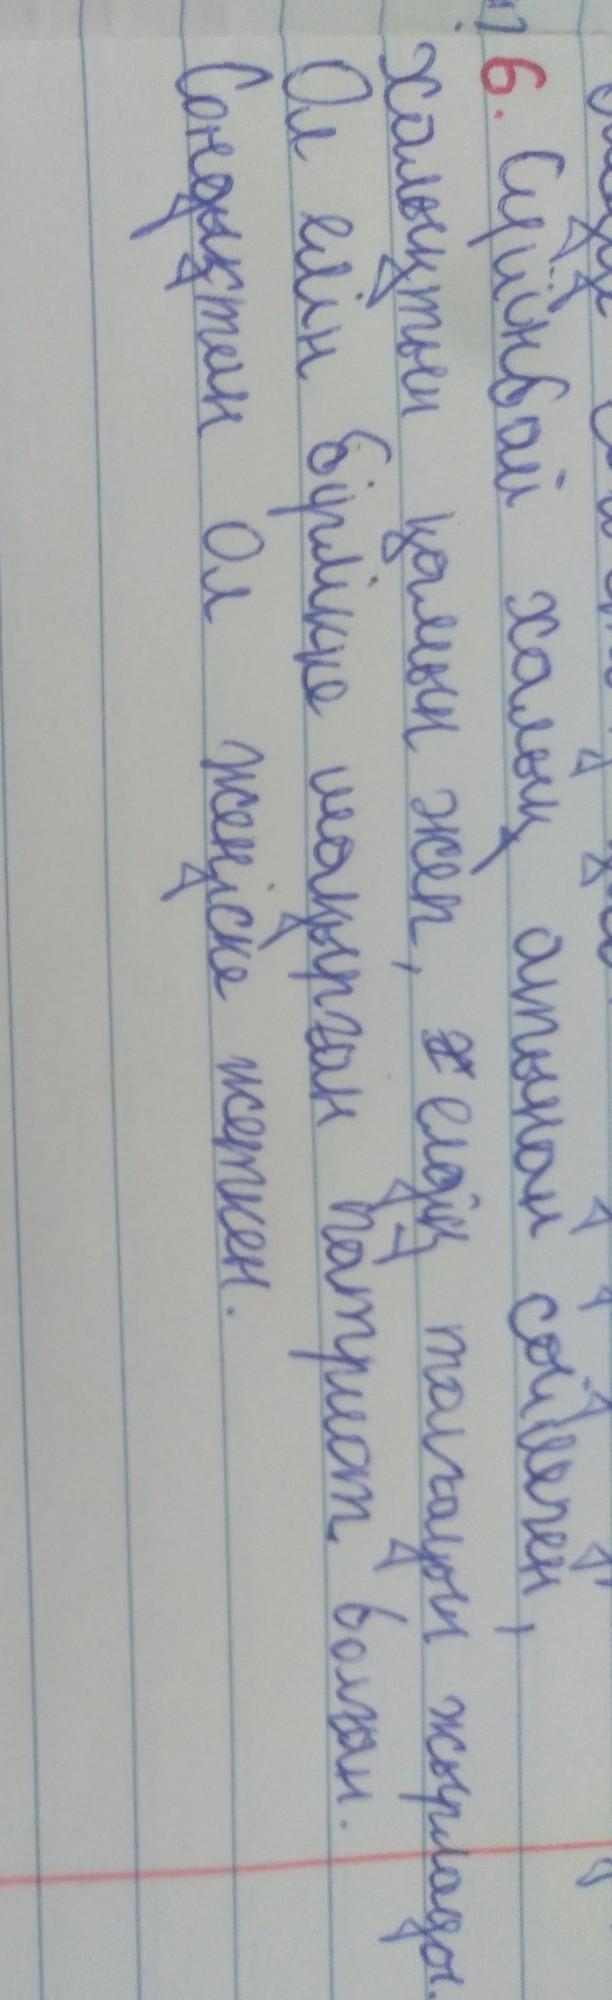 6. Сүйінбай халық атынан сөйлеген,
халықтың қамын жеп, елдің талғауын жырлады.
Ол елін бірлікке шақырған патриот болған.
Сондықтан Ол жеңіске жеткен.